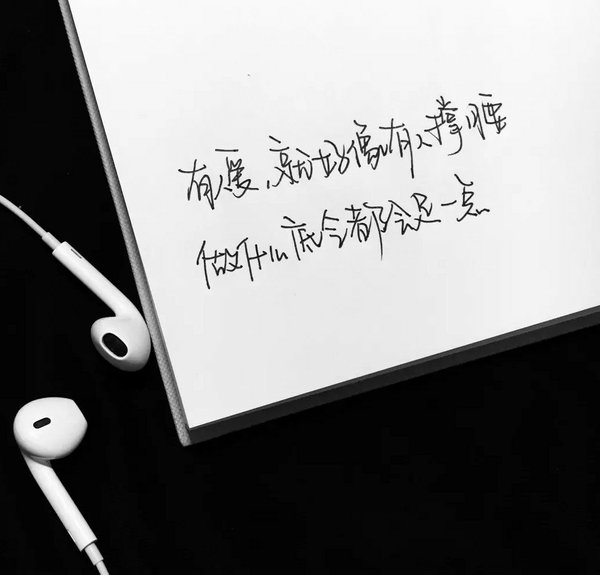 有爱，就好像有人撑腰
做什么底气都会足一点